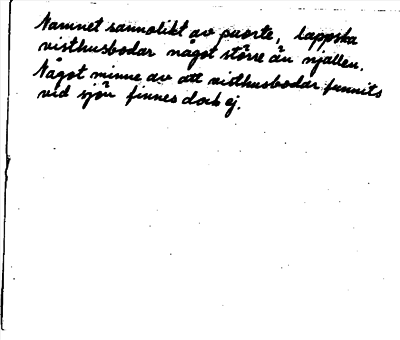 Namnet sannolikt av puorte, lappska
visthusbodar något större än njallen.
Något minne av att visthusbodar funnits
vid sjön finnes dock ej.